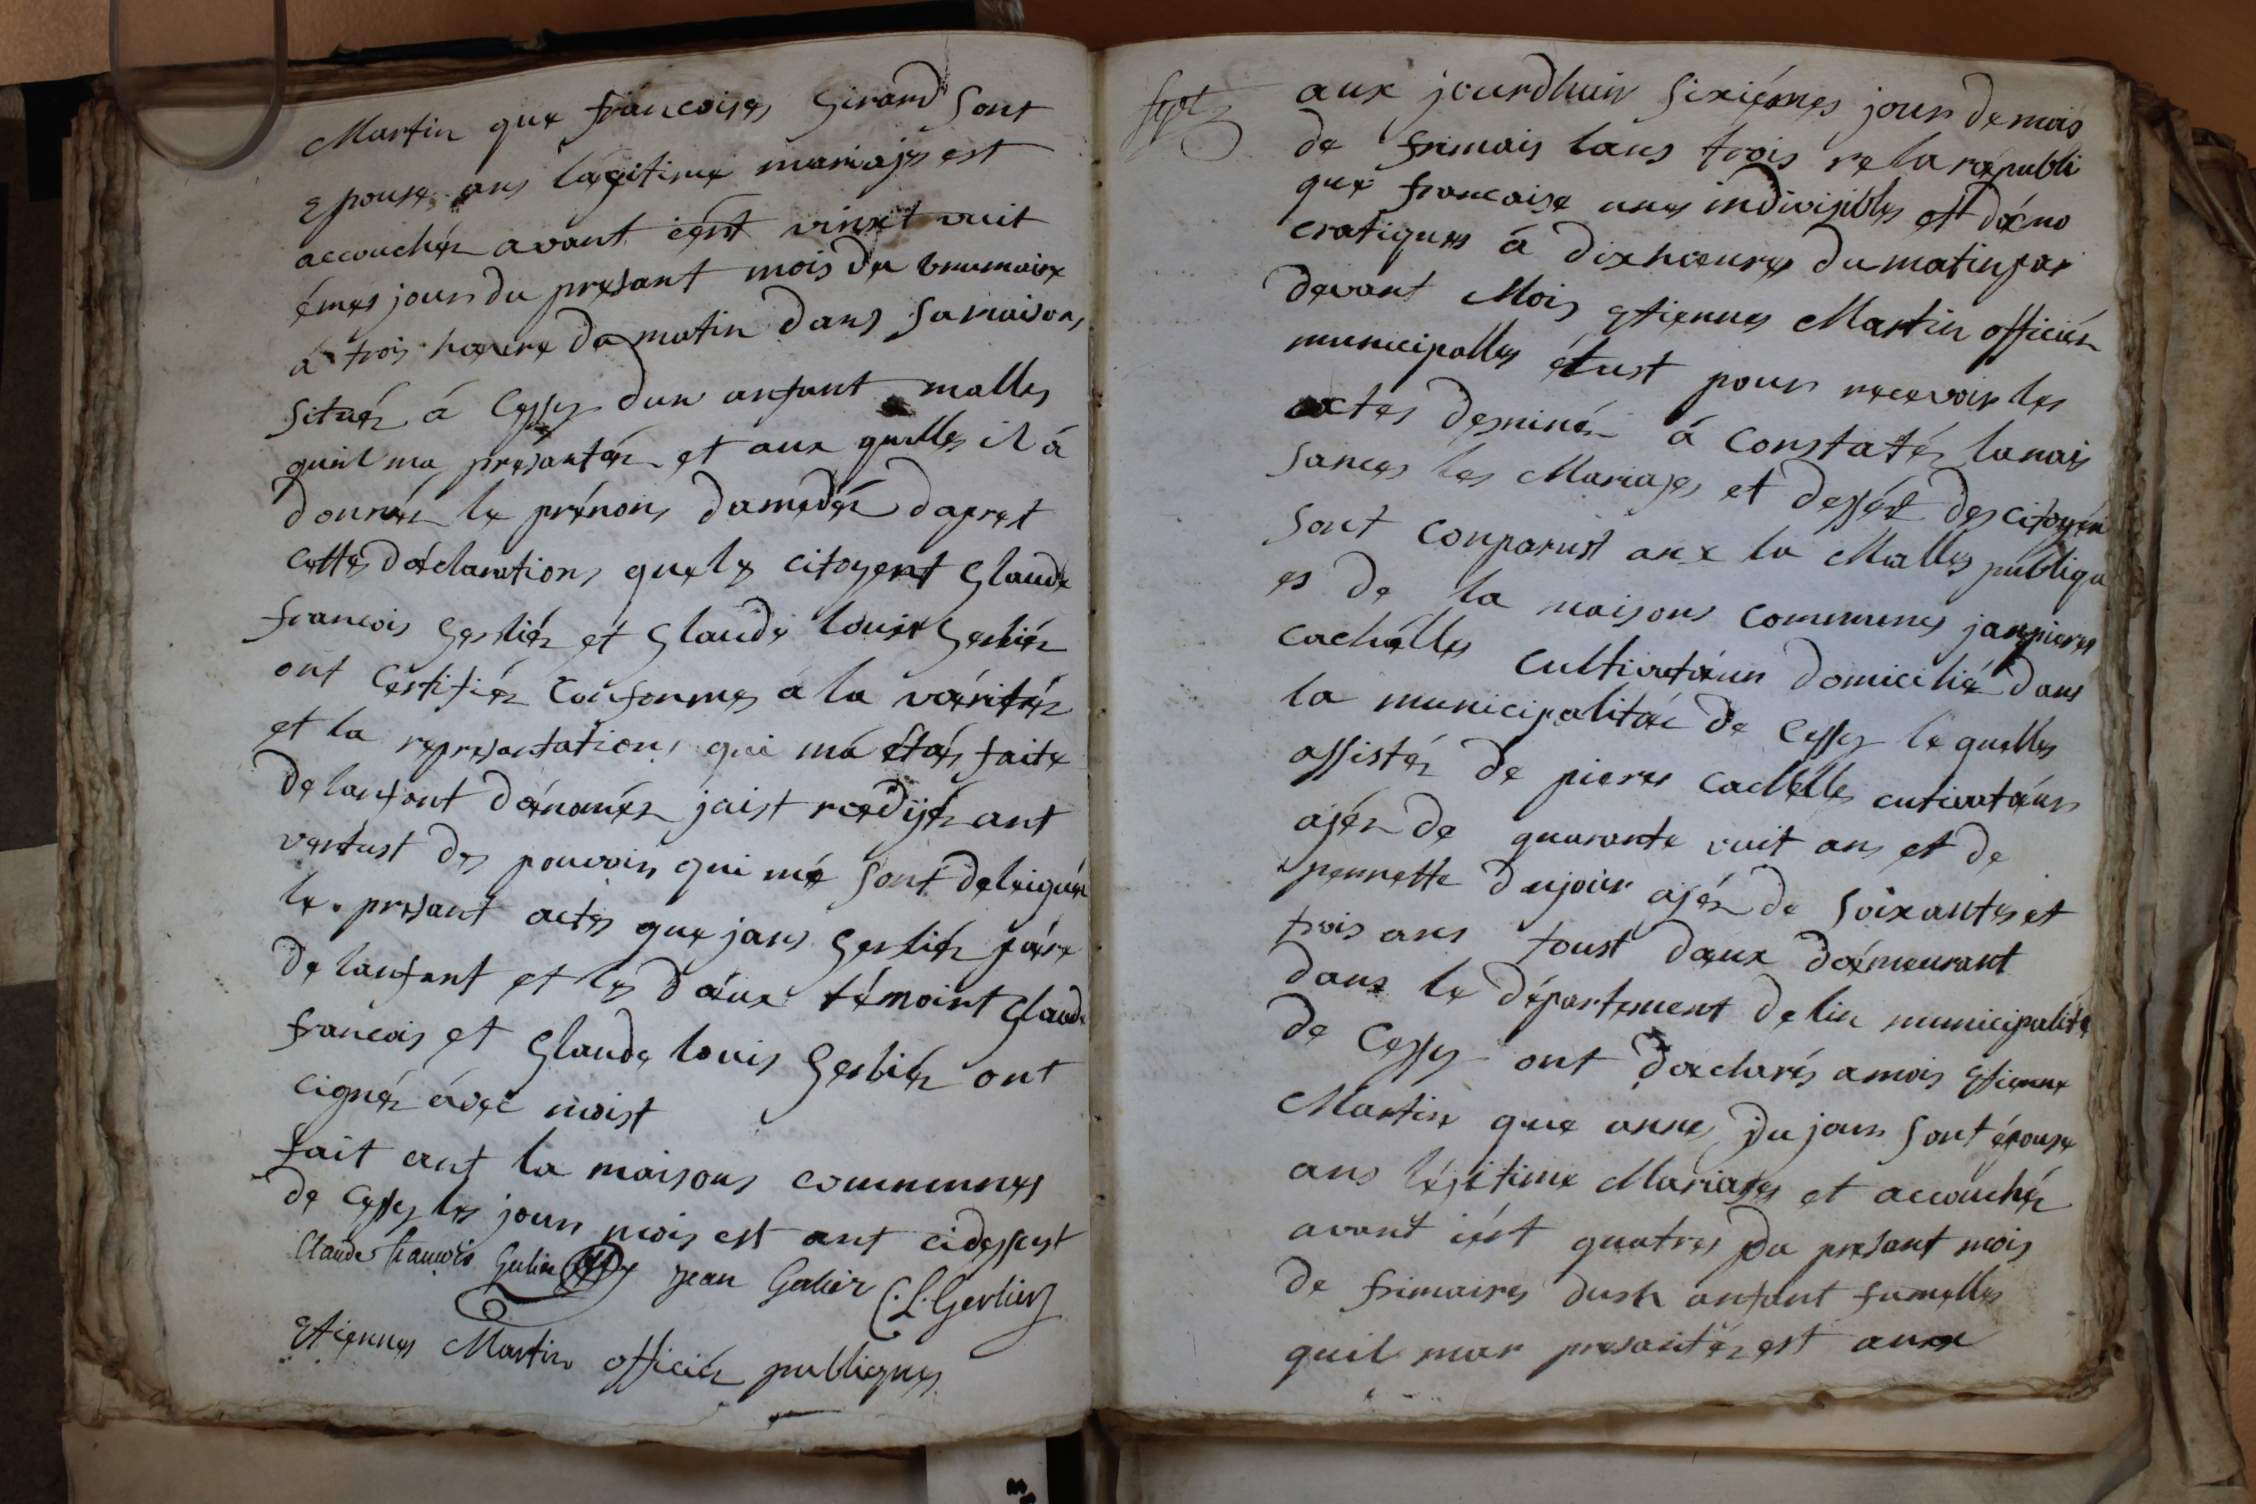 Martin que francoises Girard sont
epouse ans lagitime mariajes est
accouchéz avant iért vinxt vuit
émes jour du presant mois de brumaire
à trois haeure de matin dans sa maisons
situéz à Cessy dun anfant malles
quil ma presantéz et aux quelles il à
donnéz le prénoms damedéz dapret
cettes dæclarations que ly citoyent Glaude
francois Gerliéz et Glaude louis Gerliéz
ont Certifiéz Conformes a la væritéz
et la represantations qui ma étæs faite
de lanfant dænoméz jaist rædijéz ant
vertust des pouvoirs qui mé sont deleiguéz
le presant actes que jans Gerliéz pære
de lanfant et ly dæux témoint Glaude
francois et Glaude louis Gerliéz ont
cignéz ávec moist
fait ant la maisons communnes
de Cessy les jour mois est ant cidessust
Claude francois Gerlier Jean Gerlier C. L. Gerlier
Etiennes Martin officiéz publiques
sept
aux jourdhuir sixiémes jour de mois
de frimais lans trois re la ræpubli
que francaise unes indivisibles et dæmo
cratiques à dix hoeures du matin par
devant Mois Etiennes Martin officiéz
municipalles élust pour recevoir les
actes desninéz à Constatéz lanais
sances les Mariajes et dessést des citoyén
sont Conparust aux la Malles publiqu
es de la maisons Communes janpieres
Cachælles Cultivatæur domiciliæ dans
la municipalitæe de Cessy le quelles
assistéz de pieres Cachelles cutivatæurs
ajéz de quarante vuit ans et de
pernette dujour ajéz de soixantes et
trois ans toust dæux dæmeurant
dans le département de lin municipalité
de Cessy ont dæclarés a mois Etienne
Martin que annes Dujour sont épouse
ans légitime Mariajes et accouchéz
avant iért quatres du presant mois
de frimaires dush anfant fumelles
quil mar presantéz est aux